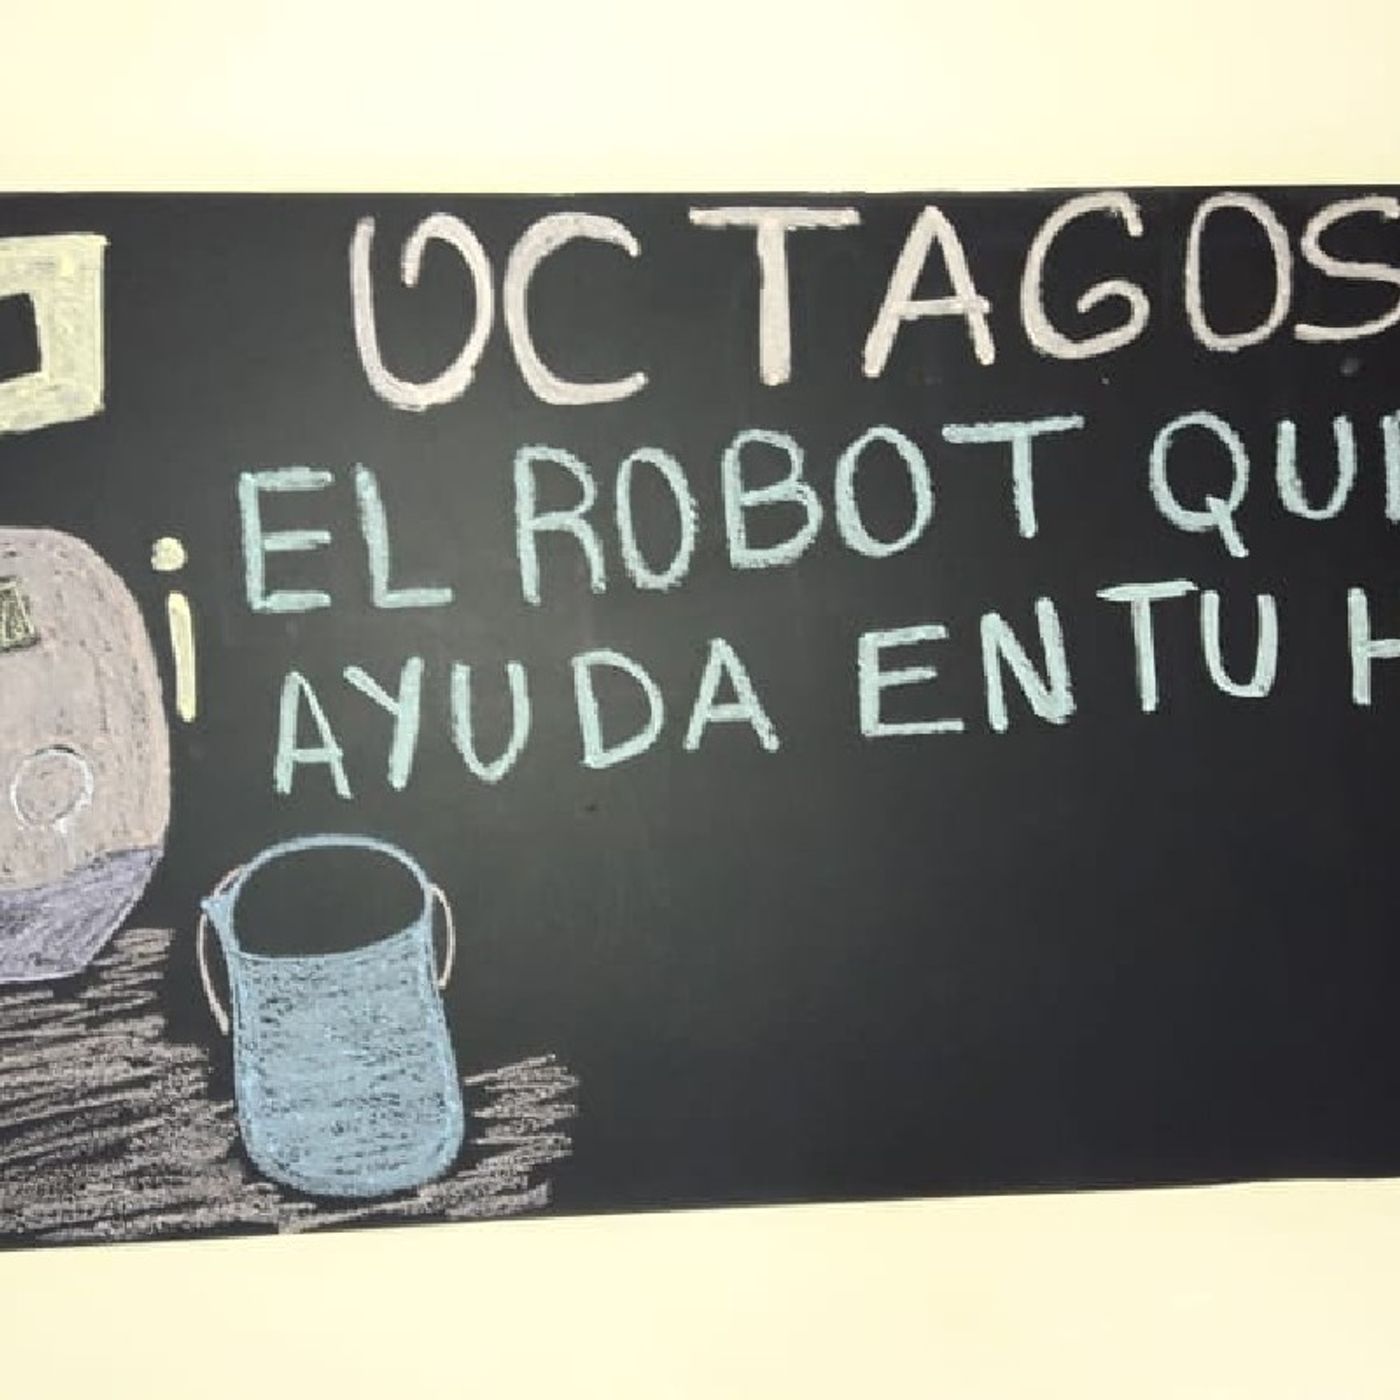 OCTAGOS
¡EL ROBOT QUE
AYUDA EN TU H